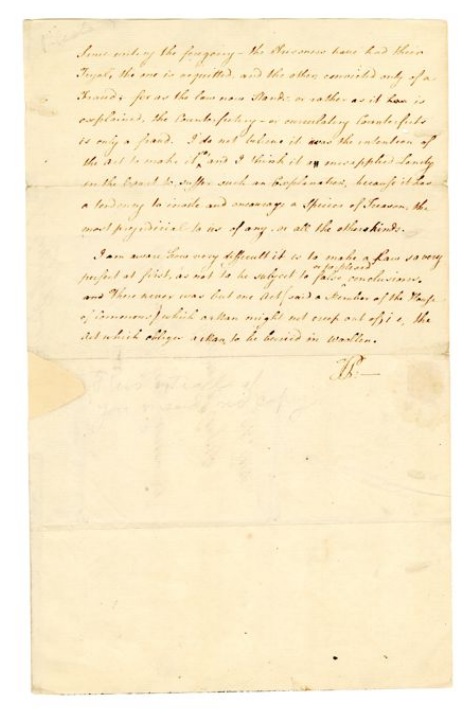 Since writing the foregoing – the Prisoners have had their
Tryals, the one is acquitted, and the other convicted only of a
Fraud; for as the law now Stands or rather as it is
explained, the Counterfeiting – or circulating Counterfeits
is only a fraud. I do not believe it was the intention of
the Act to make it so, and I think it a misapplied Lenity
in the Court to suffer such an Explanation, because it has
a tendency to invite and encourage a Species of Treason, the
most prejudicial to us of any, or all the other kinds.
I am aware how very difficult it is to make a Law so very
perfect at first, as not to be subject to false or forced conclusions.
and There never was but one Act (said a Member of the House
of Commons) which a Man might not creep out of, i e, the
Act which obliges a Man to be buried in woollen.
TP. –